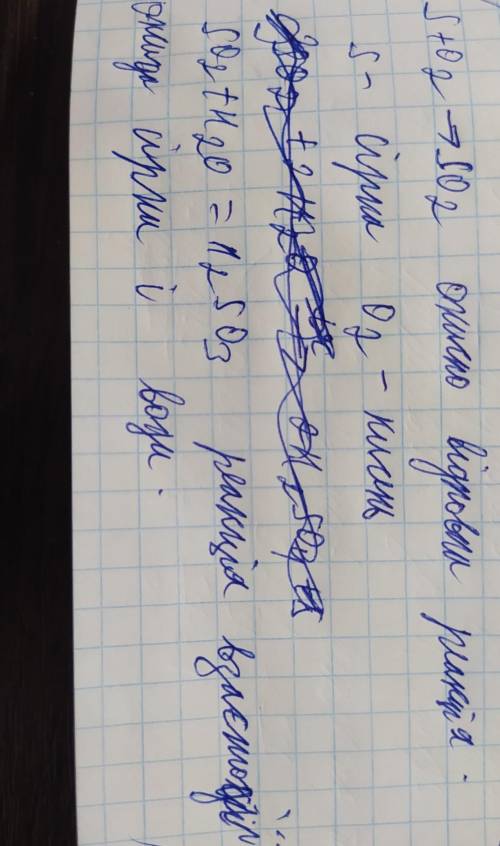 S+O2 → SO2 окисно відновна реакція.
S - сірка O2 - кисень
SO2 + H2O = H2SO3 реакція взаємодії
оксиду сірки і води.